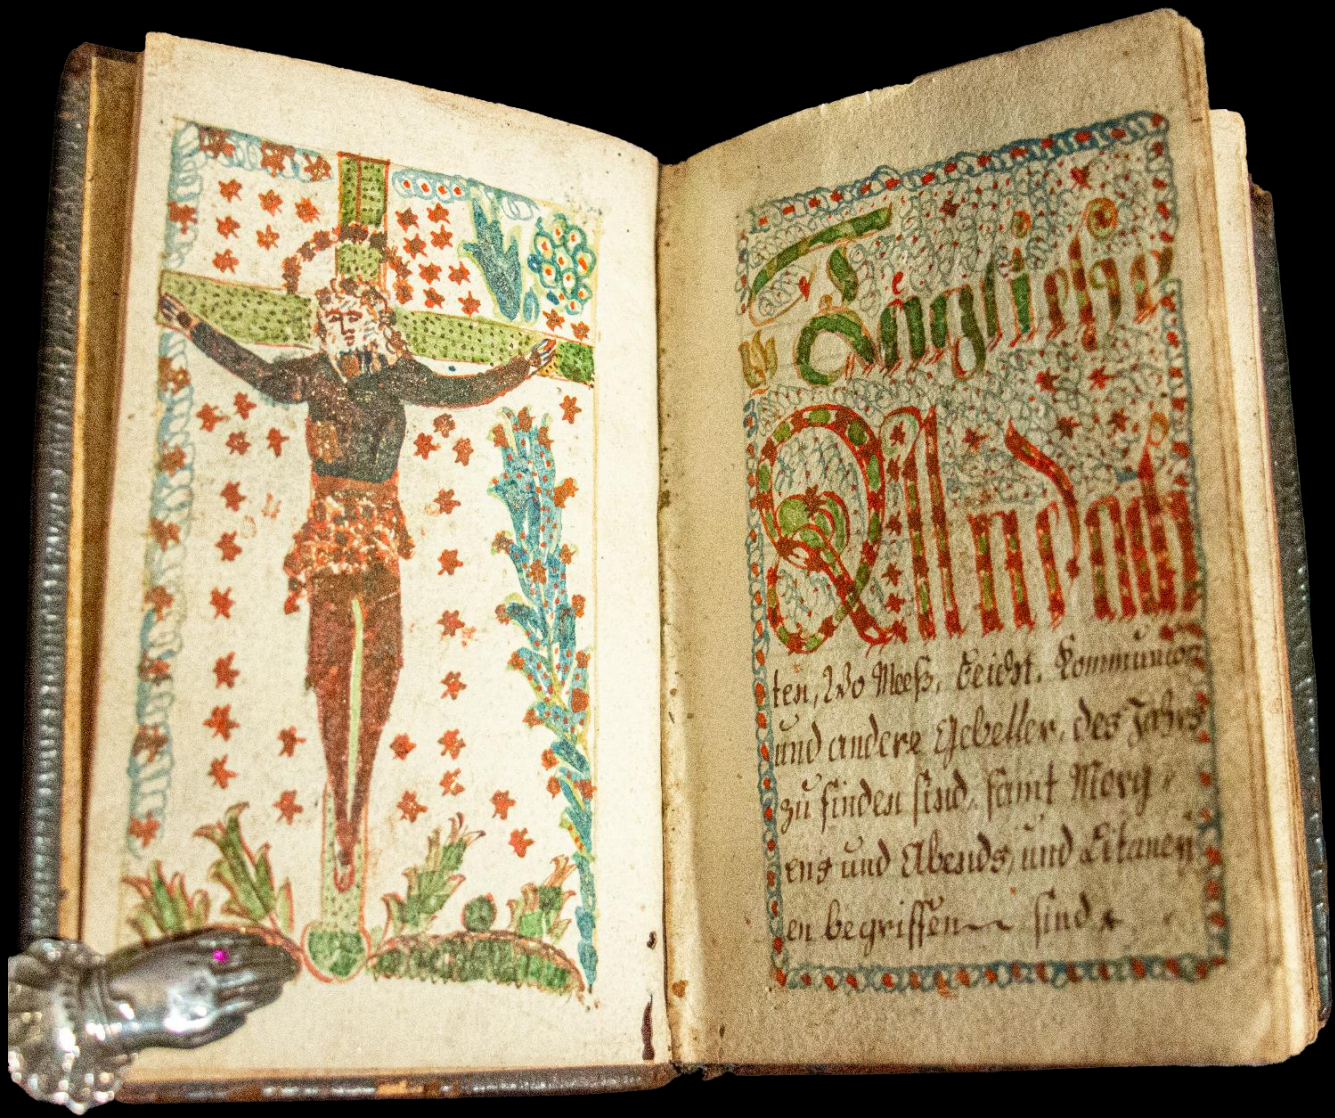 Tägliche
Andach
ten, Wo Meeß, Beicht, Kommunion
und andere Gebetter, des Jahrs
zu finden sind, samt Morg=
ens und Abends, und Litaneÿ
en begriffen sind